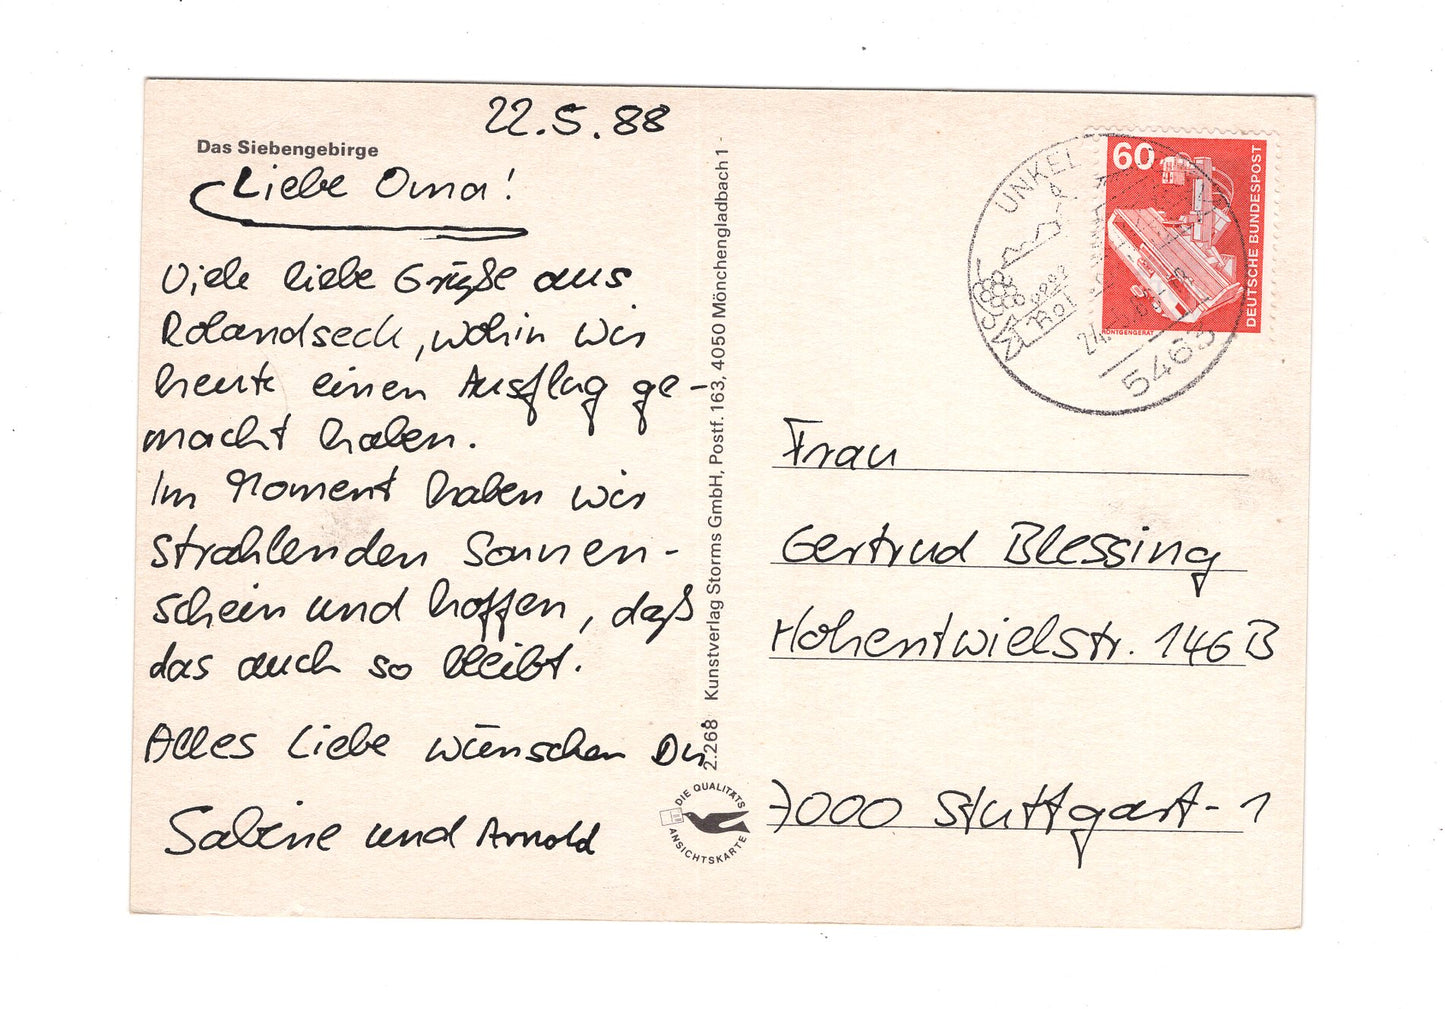 22.5.88
Das Siebengebirge
Liebe Oma!
Viele liebe Grüße aus
Rolandseck, wohin wir
heute einen Ausflug ge-
macht haben.
Im Moment haben wir
strahlenden Sonnen-
schein und hoffen, daß
das auch so bleibt.
Alles Liebe wünschen Dir
Sabine und Arnold
2.268 Kunstverlag Storms GmbH, Postf. 163, 4050 Mönchengladbach 1
DIE QUALITÄTS
ANSICHTSKARTE
60
DEUTSCHE BUNDESPOST
RÖNTGENGERÄT
UNKEL
5463
Frau
Gertrud Blessing
Hohentwielstr. 146B
7000 Stuttgart-1